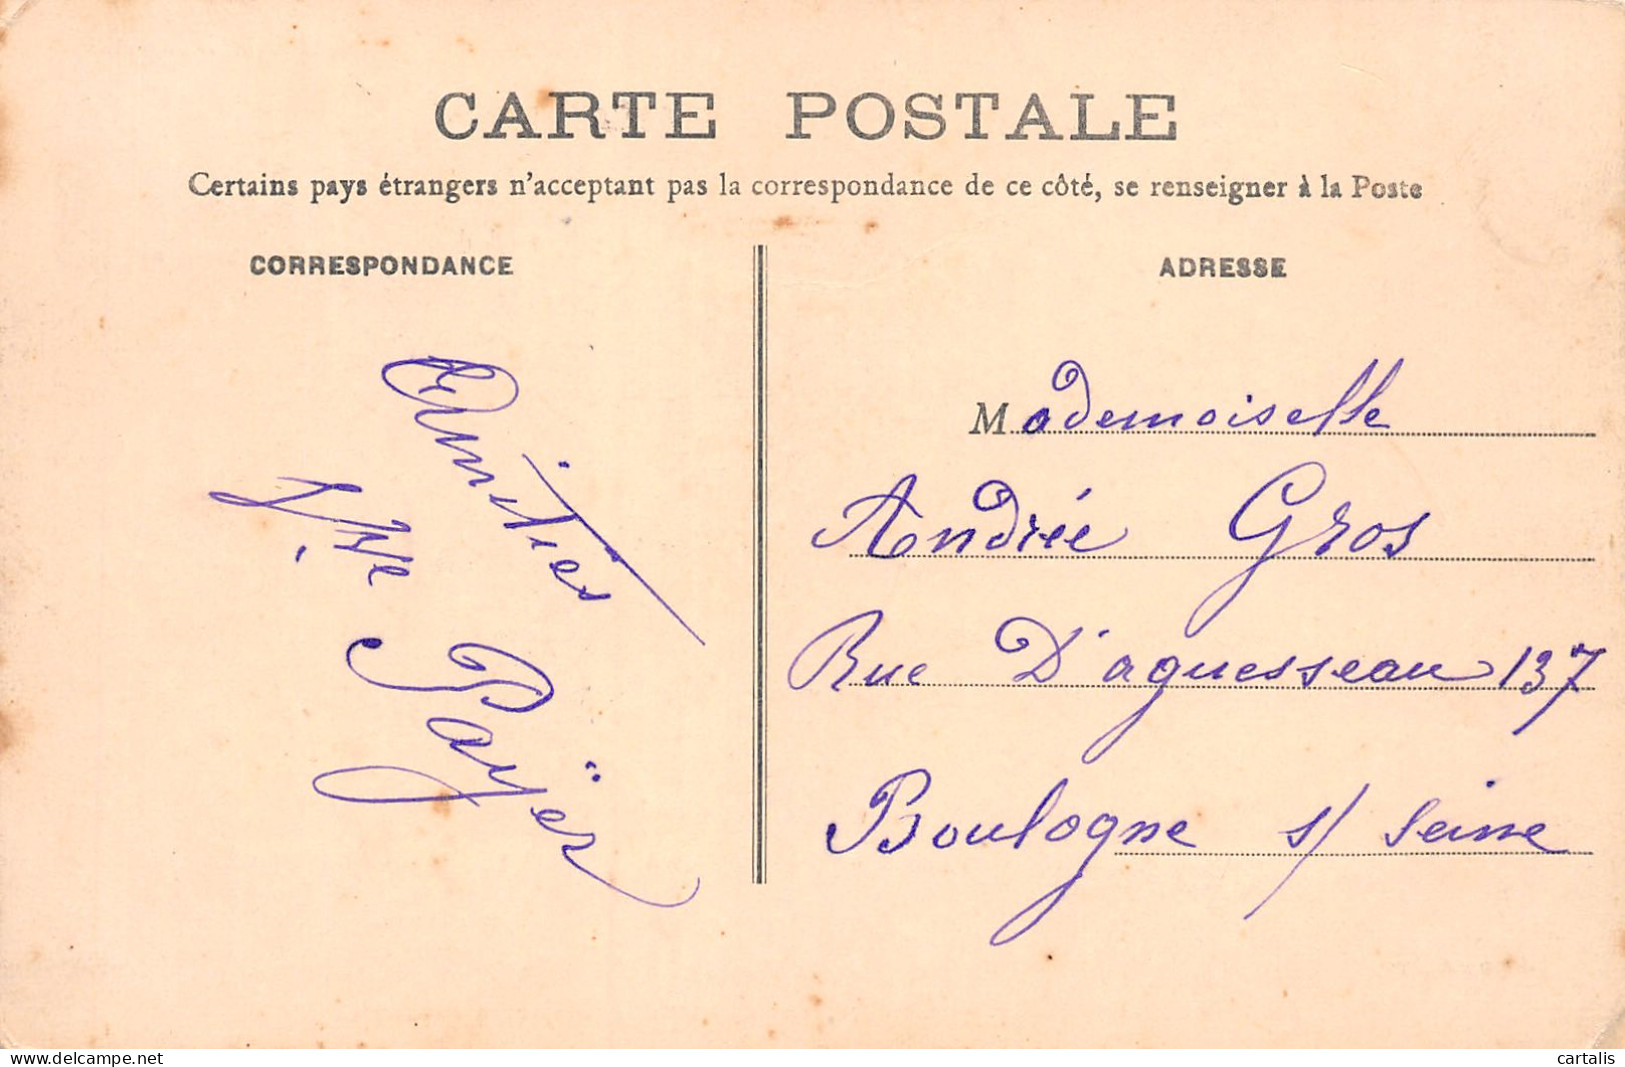 CARTE POSTALE
Certains pays étrangers n'acceptant pas la correspondance de ce côté, se renseigner à la Poste
CORRESPONDANCE
Amitiés
Payër
ADRESSE
Mademoiselle
Andrée Gros
Rue D'aguesseau 137
Boulogne s/ Seine
www.delcampe.net
cartalis